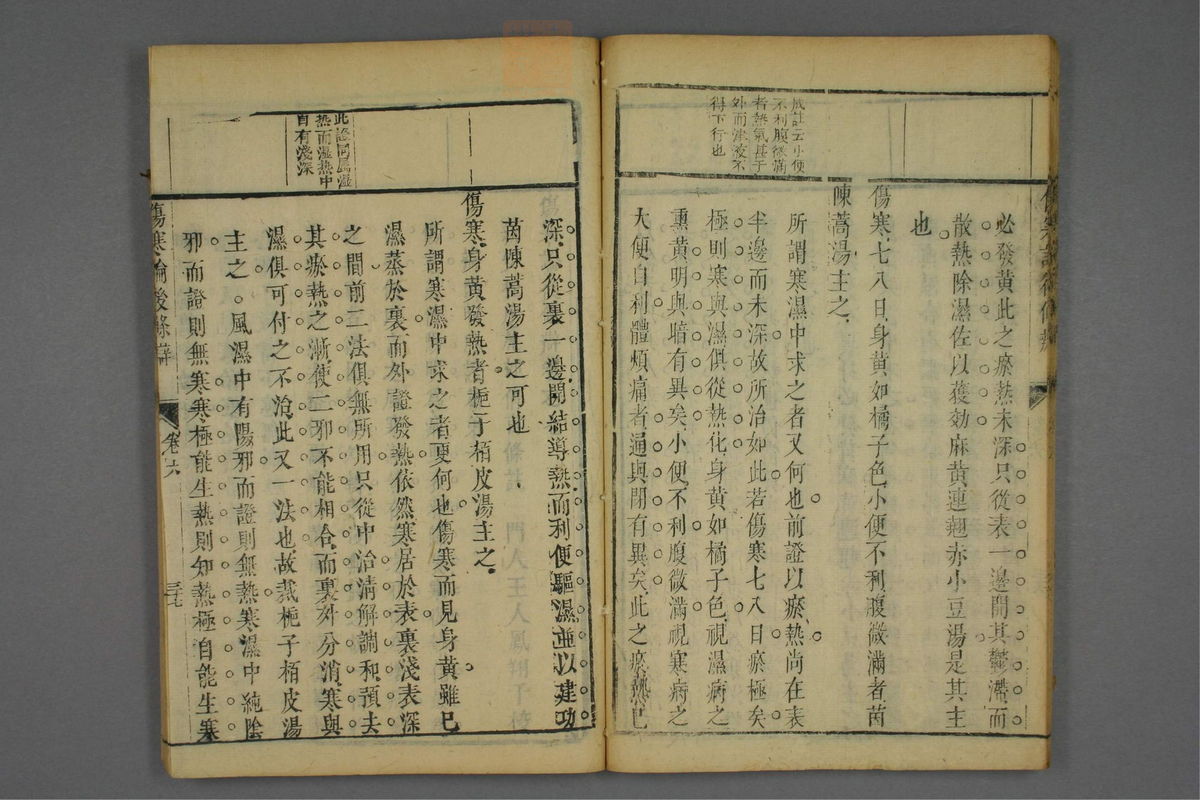 成註云小便
不利腹微滿
者熱氣甚于
外而津液不
得下行也
必發黃此之瘀熱未深只從表一邊開其鬱滯而
散熱除濕佐以獲効麻黃連翹赤小豆湯是其主
也
傷寒七八日身黃如橘子色小便不利腹微滿者茵
陳蒿湯主之
所謂寒濕中求之者又何也前證以瘀熱尚在表
半邊而未深故所治如此若傷寒七八日瘀極矣
極則寒與濕俱從熱化身黃如橘子色視濕病之
熏黃明與暗有異矣小便不利腹微滿視寒病之
大便自利體煩痛者通與閉有異矣此之瘀熱已
此證同屬濕
熱而濕熱中
自有淺深
深只從裏一邊開結導熱而利便驅濕並以建功
茵陳蒿湯主之可也
傷寒身黃發熱者梔子栢皮湯主之
所謂寒濕中求之者更何也傷寒而見身黃雖已
濕蒸於裏而外證發熱依然寒居於表裏淺表深
之間前二法俱無所用只從中治清解調和預去
其瘀熱之漸使二邪不能相合而裏外分消寒與
濕俱可付之不治此又一法也故我梔子栢皮湯
主之風濕中有陽邪而證則無熱寒濕中純陰
邪而證則無寒寒極能生熱則知熱極自能生寒
傷寒論後條辯
卷六
三七